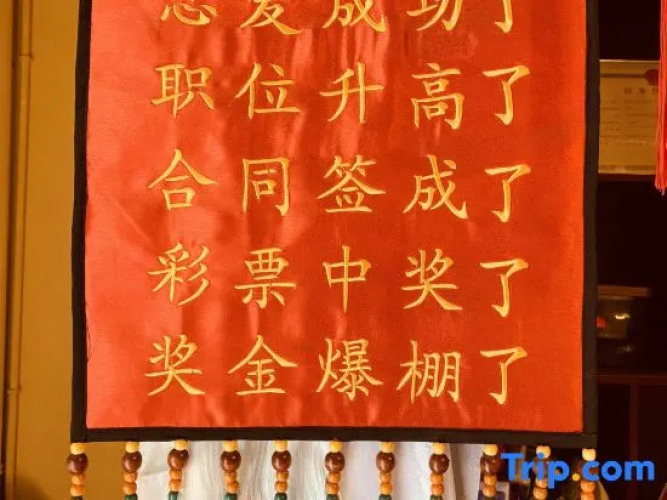 恋爱成功了
职位升高了
合同签成了
彩票中奖了
奖金爆棚了
Trip.com